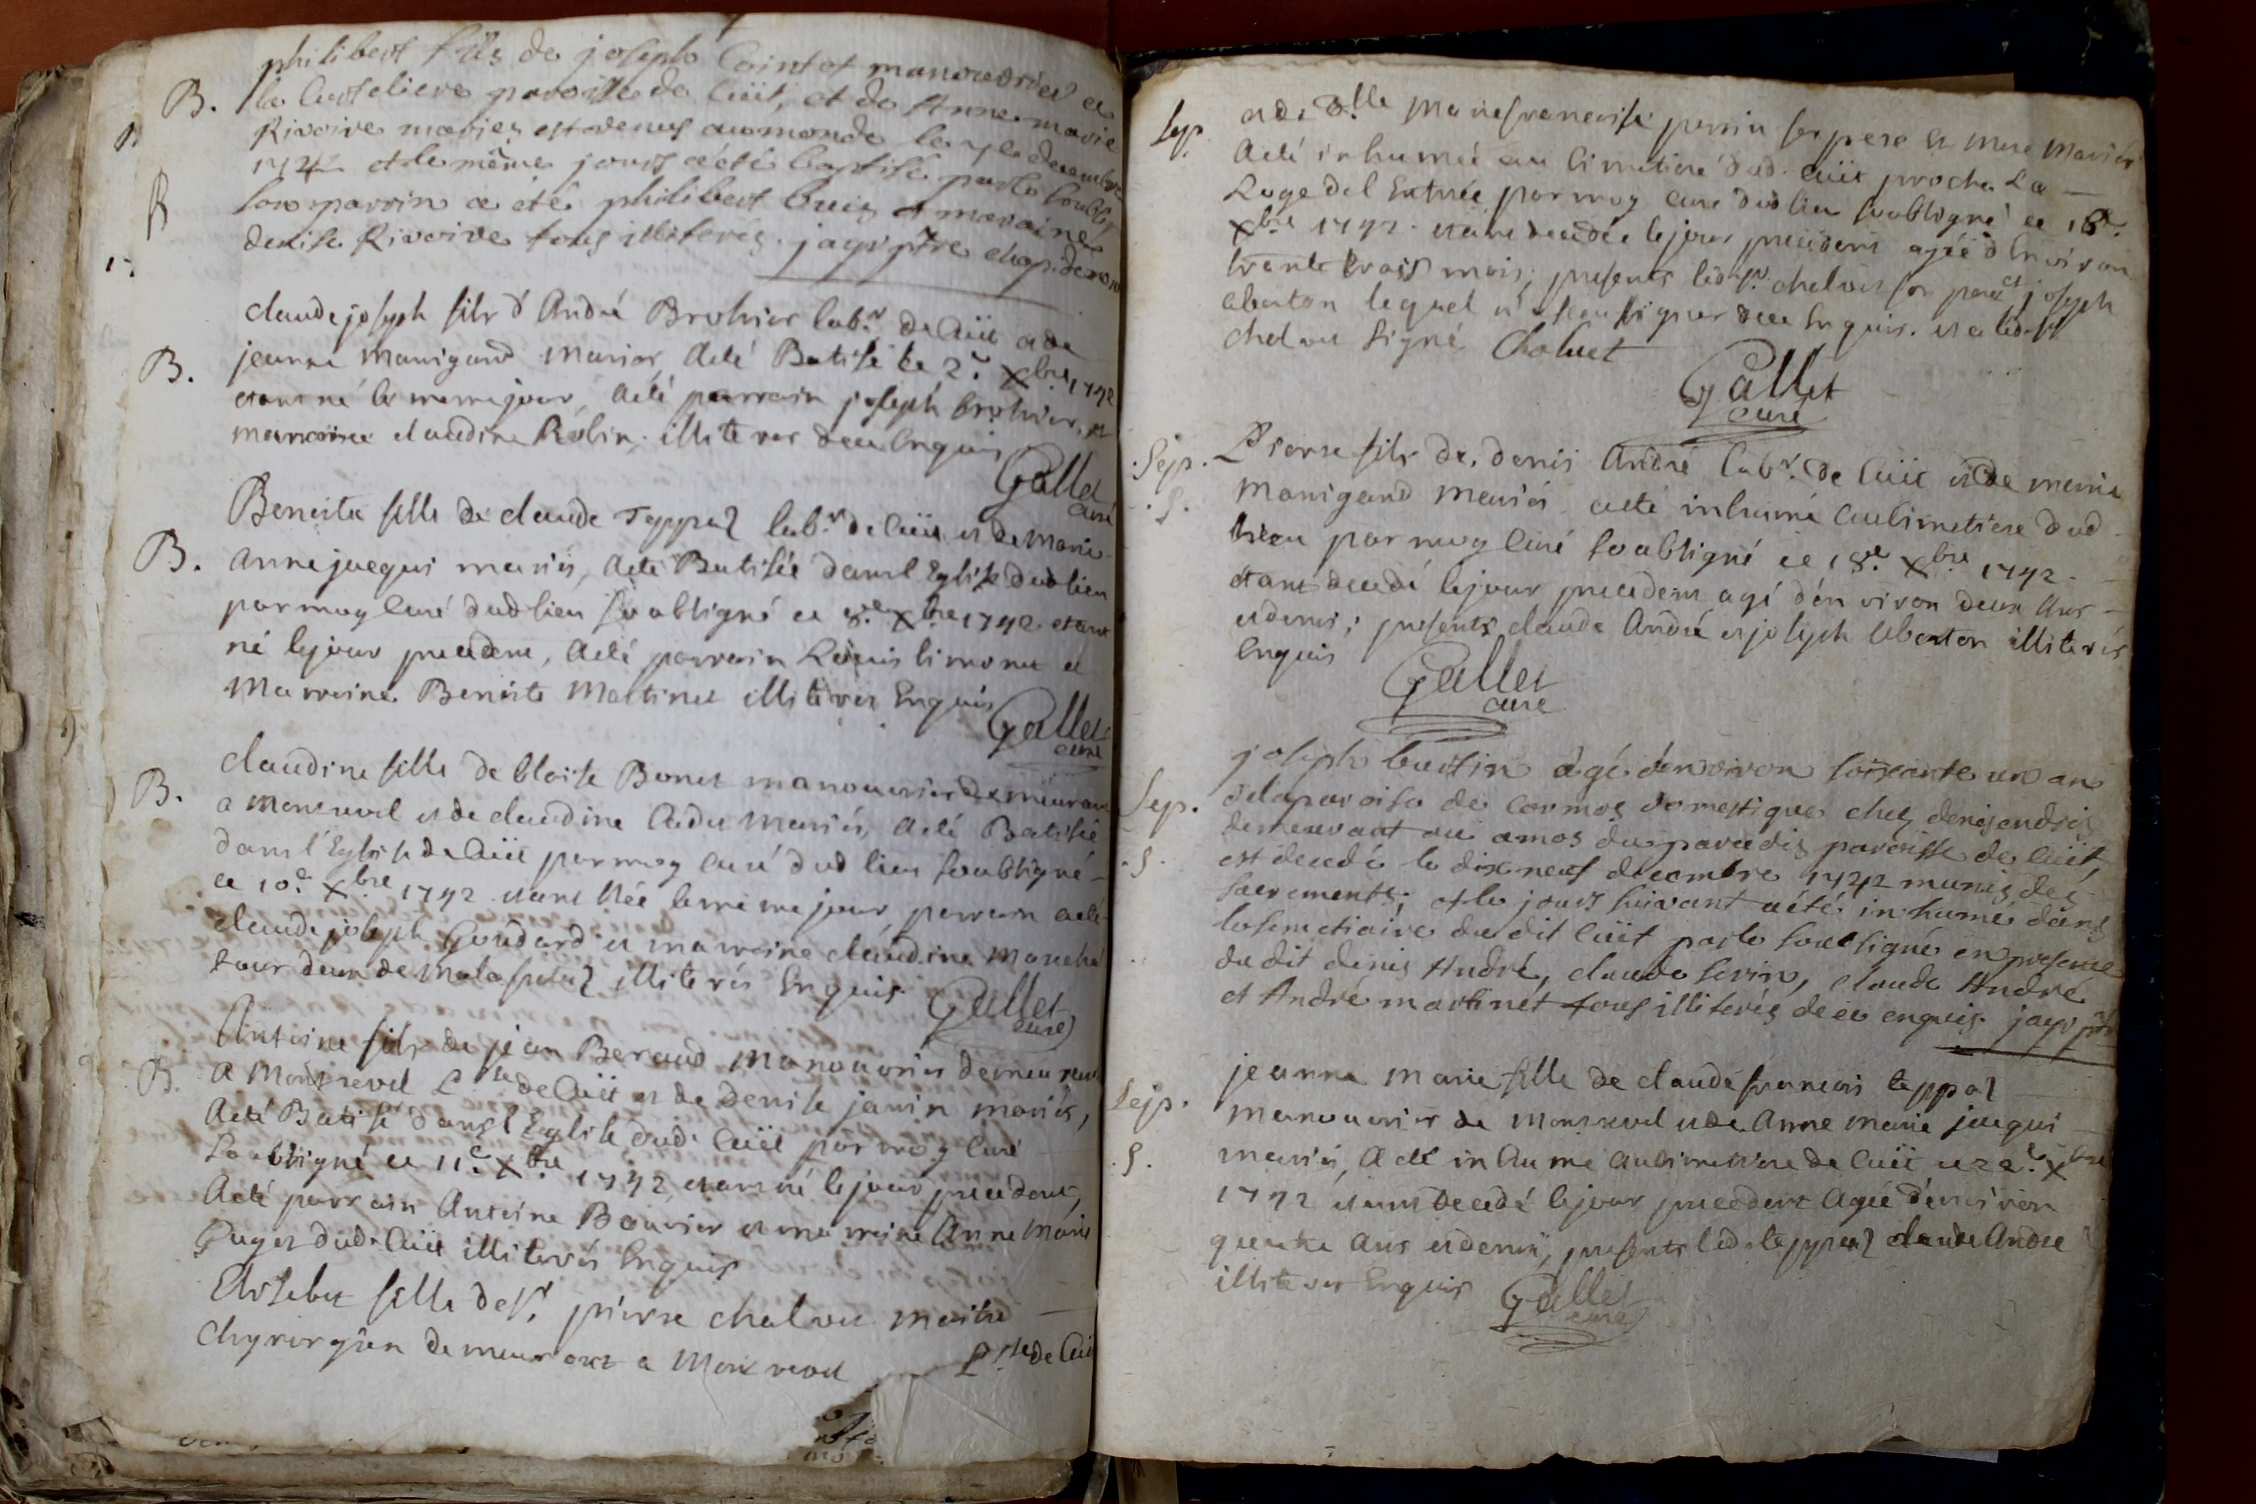 philibert fils de joseph Cointet manouvrier a
B. la Curteliere paroisse de Cuit, et de Anne marie
Rivoire mariez est venus au monde le 7e decembre
1742 et le même jours a été baptisé par le soubsigné
son parrin a été philibert buis et maraine
denise Rivoire tous illiterés. jayr ptre
claude joseph fils d'André Brohier labr. de Cuit & de
B. jeanne Manigand Mariés, a eté Batisé le 2e. Xbre 1742
etant né le meme jour, a eté parrain joseph brohier, et
marraine claudine Robin. illiteres de ce Enquis
Gallet
curé
Benoite fille de claude Teppaz labr. de Cuit et de Marie
B. Anne jacqui mariés, a eté Batisée dans l'Eglise dud lieu
par moy Curé dud lieu soubsigné ce 8e. Xbre 1742 etant
né le jour precedent, a eté parrain Louis limonet et
Marraine Benoite Martinet illiteres Enquis
Gallet
curé
claudine fille de blaise Bonet manouvrier demeurant
B. a Monrevel et de claudine Cadet Mariés, a eté Batisée
dans l'Eglise de Cuit par moy curé dud lieu soubsigné
ce 10e. Xbre 1742 etant Née le meme jour parrain a eté
claude joseph Goudard et marraine claudine
tour deux de illiterés Enquis
Gallet
curé
Antoine fils de jean Beraud Manouvrier demeurant
B. a Montrevel Psse de Cuit et de Denise janin mariés,
a eté Batisé dans l'Eglise dud. Cuit par moy Curé
soubsigné ce 11e. Xbre 1742, etant né le jour precedent,
a eté parrain Antoine Bouvier et marraine Anne Marie
Puget dud. Cuit illiterés Enquis
Elisabet fille de sr. pierre chalvet Maitre
Chyrurgien demeurant a Monrevel
Psse de Cuit
Sep. & de Dlle Marie francoise perrin ses pere et mere Mariés
a eté inhumée au Cimetiere dud. Cuit proche La
Loge de l'Entrée par moy curé dud lieu soubsigné ce 18e.
Xbre 1742. etant decedée le jour precedent agée d'Environ
trente trois mois; presents led sr. chalvet son pere et joseph
eberton lequel n'a sceu signer de ce Enquis. et a led sr
chalvet Signé Chalvet
Gallet
curé
Sep. Pierre fils de. denis André labr. de Cuit et de marie
.S. Manigand Mariés a eté inhumé au Cimetiere dud
lieu par moy Curé soubsigné ce 18e. Xbre 1742.
etant decedé le jour precedent agé d'environ deux Ans
et demi; presents claude André et joseph eberton illiterés
Enquis
Gallet
curé
joseph burtin âgé d'environ soixante un an
Sep. de la paroise de Cormos domestique chez denis andrés
demeurant au amos du paradis paroisse de Cuit,
.S. est decedé le dix neuf decembre 1742 munis des
sacrements; et le jours suivant a été inhumé dans
le semetiaire du dit Cuit par le sousigné en presence
du dit denis André, claude serin, claude André
et André martinet tous illiterés de ce enquis. jayr ptre
jeanne Marie fille de claude francois teppaz
Sep. manouvrier de Monrevel et de Anne marie jacqui
.S. mariés, a eté inhumé au Cimettiere de Cuit ce 22e. Xbre
1742 etant decedé le jour precedent agée d'environ
quatre Ans et demi, presents led. teppaz claude André
illiteres Enquis
Gallet
curé